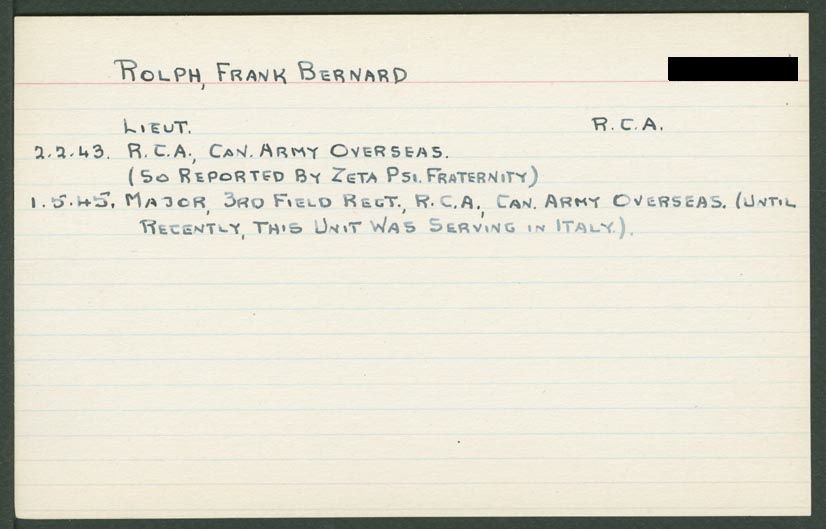 ROLPH, FRANK BERNARD
LIEUT. R.C.A.
2.2.43. R.C.A., CAN. ARMY OVERSEAS.
(SO REPORTED BY ZETA PSI. FRATERNITY)
1.5.45. MAJOR, 3RD FIELD REGT., R.C.A., CAN. ARMY OVERSEAS. (UNTIL
RECENTLY, THIS UNIT WAS SERVING IN ITALY.).